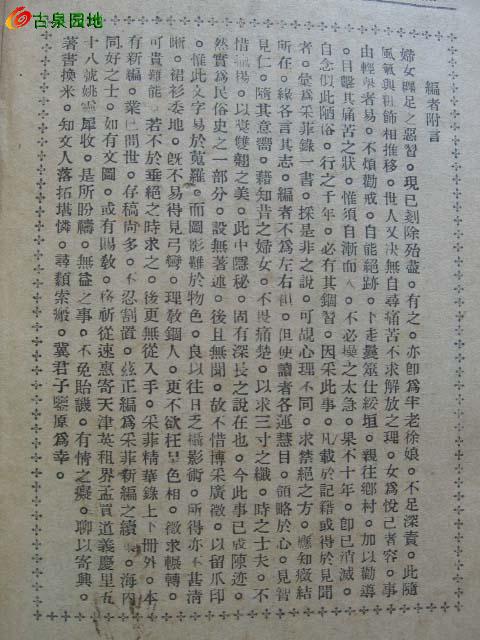 古泉园地
編者附言
婦女纏足之惡習。現已剗除殆盡。有之。亦卽爲半老徐娘。不足深責。此隨
風氣與粧飾相推移。世人又决無自尋痛苦不求解放之理。女爲悅己者容。事
由輕擧者易。不煩勸戒。自能絕跡。卜走曩筮仕綏垣。親往鄉村。加以勸導
。目擊其痛苦之狀。惟須自漸而入。不必操之太急。果不十年。卽已消滅。
自念似此陋俗。行之千年。必有其錮習。因采此事。凡載於記籍或得於見聞
者。彙爲采菲錄一書。採是非之說。可覘心理不同。求禁絕之方。應知癥結
所在。緣各言其志。編者不爲左右袒。但使讀者各運慧目。領略於心。見智
見仁。隨其意嚮。藉知昔之婦女。不畏痛楚。以求三寸之纖。時之士夫。不
惜揄揚。以覓雙翹之美。此中隱秘。固有深長之說在也。今此事已成陳迹。
然實爲民俗史之一部分。設無著述。後且無聞。故不惜博采廣徵。以留爪印
。惟此文字易於蒐羅。而圖影難於物色。良以往日乏攝影術。所得亦不甚清
晰。裙衫委地。旣不易得見弓彎。理敎錮人。更不欲枉呈色相。徵求輾轉。
可貴難能。若不於垂絕之時求之。後更無從入手。采菲精華錄上下冊外。本
有新編。業已問世。存稿尚多。不忍割置。茲正編爲采菲新編之續。海內
同好之士。如有文圖。或有賜敎。務祈從速惠寄天津英租界孟買道義慶里五
十八號姚靈犀收。是所盼禱。無益之事。不免貽譏。有情之癡。聊以寄興。
著書換米。知文人落拓堪憐。尋類索瘢。冀君子鑒原爲幸。